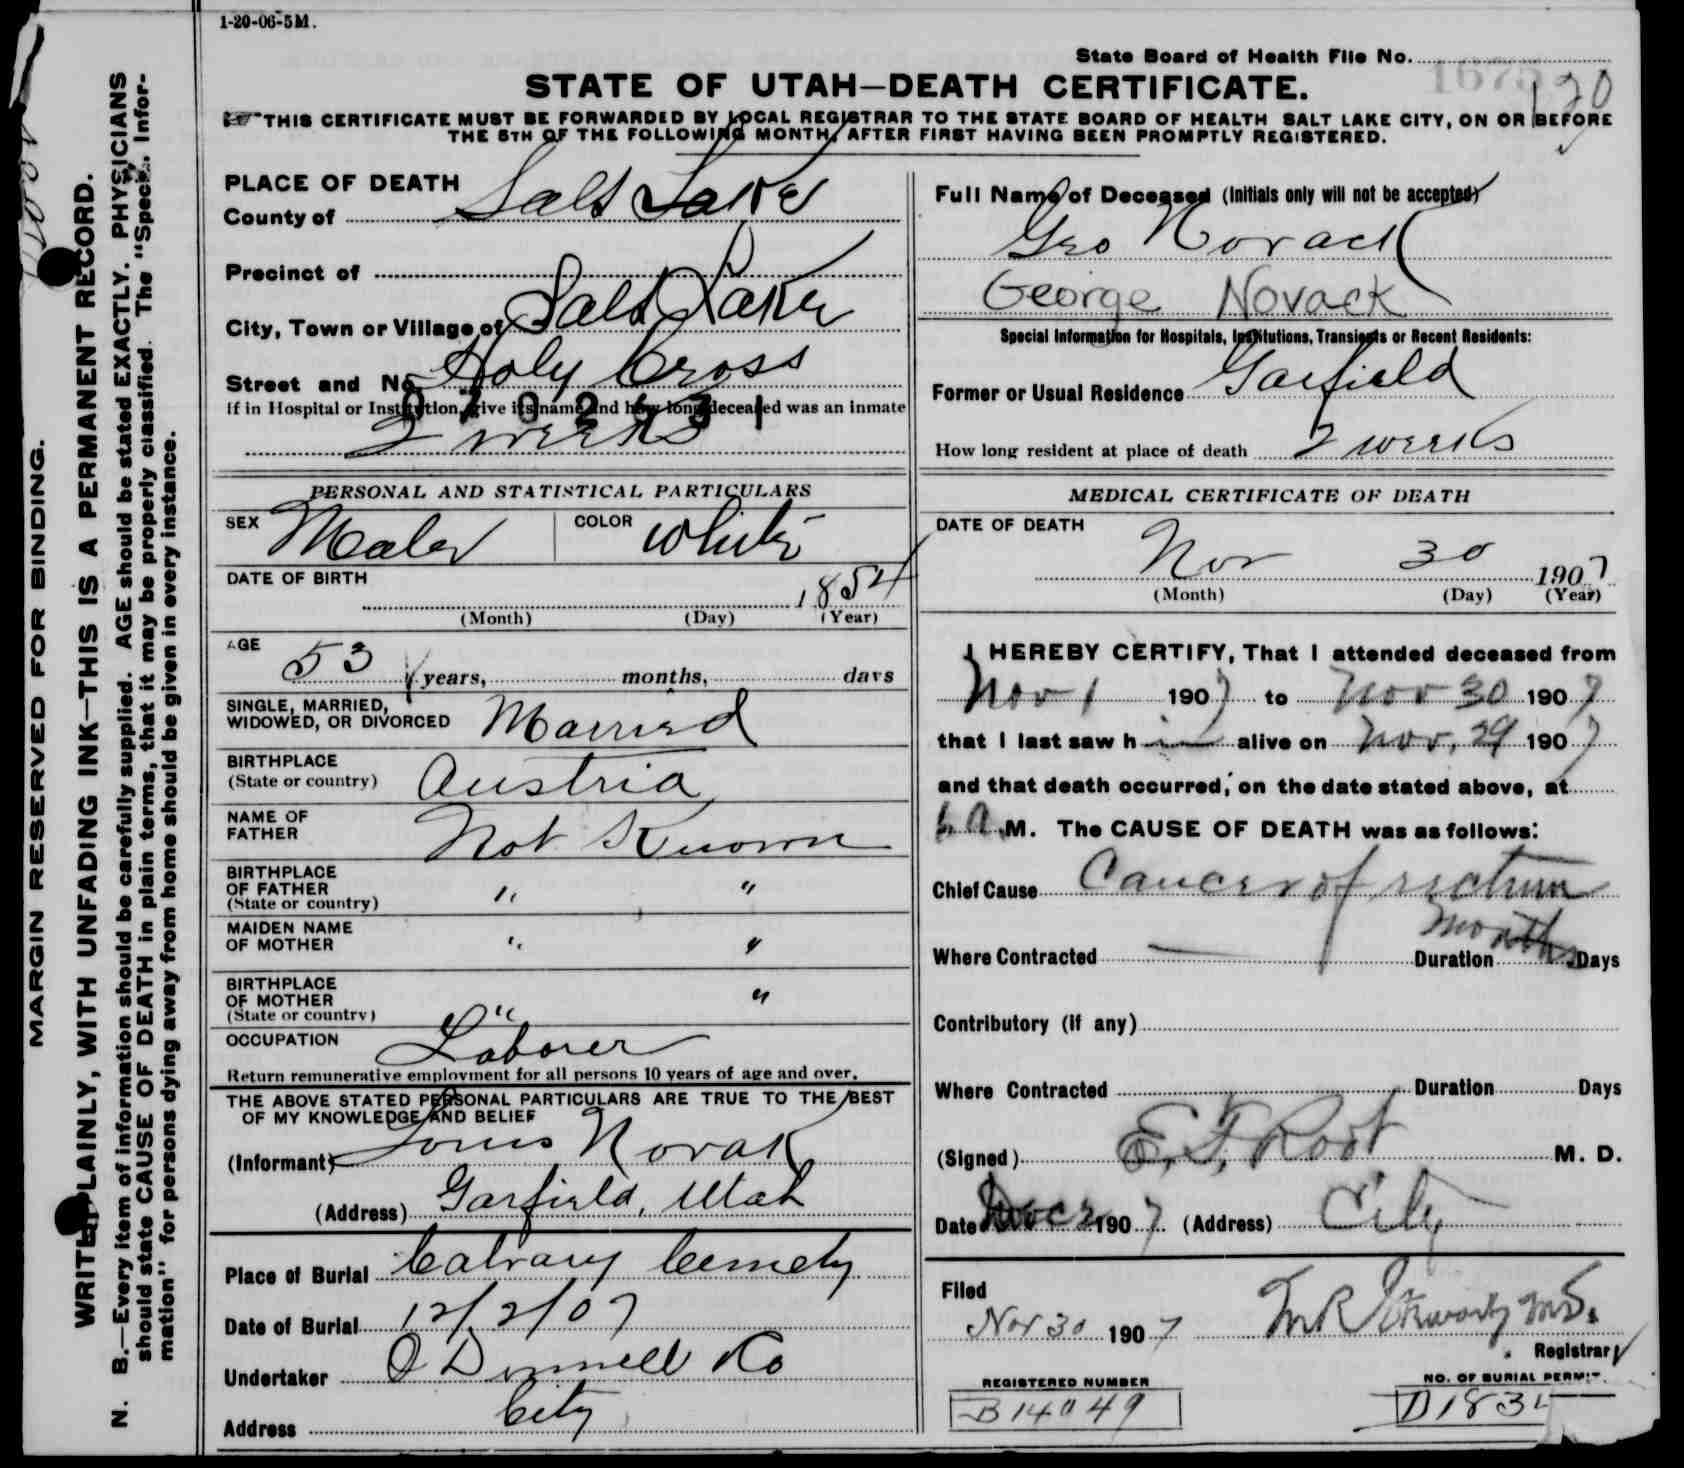 1-20-06-5M.
State Board of Health File No.
STATE OF UTAH—DEATH CERTIFICATE.
120
THIS CERTIFICATE MUST BE FORWARDED BY LOCAL REGISTRAR TO THE STATE BOARD OF HEALTH SALT LAKE CITY, ON OR BEFORE
THE 5TH OF THE FOLLOWING MONTH, AFTER FIRST HAVING BEEN PROMPTLY REGISTERED.
MARGIN RESERVED FOR BINDING.
WRITE PLAINLY, WITH UNFADING INK—THIS IS A PERMANENT RECORD.
N. B.—Every item of information should be carefully supplied. AGE should be stated EXACTLY. PHYSICIANS
should state CAUSE OF DEATH in plain terms, that it may be properly classified. The "Special Infor-
mation" for persons dying away from home should be given in every instance.
PLACE OF DEATH
County of Salt Lake
Precinct of
City, Town or Village of Salt Lake
Street and No. Holy Cross
If in Hospital or Institution, give its name and how long deceased was an inmate
2 weeks
PERSONAL AND STATISTICAL PARTICULARS
SEX Male COLOR White
DATE OF BIRTH 1854
(Month) (Day) (Year)
AGE 53 years, months, days
SINGLE, MARRIED,
WIDOWED, OR DIVORCED Married
BIRTHPLACE
(State or country) Austria
NAME OF
FATHER Not Known
BIRTHPLACE
OF FATHER
(State or country) " "
MAIDEN NAME
OF MOTHER " "
BIRTHPLACE
OF MOTHER
(State or country) " "
OCCUPATION Laborer
Return remunerative employment for all persons 10 years of age and over.
THE ABOVE STATED PERSONAL PARTICULARS ARE TRUE TO THE BEST
OF MY KNOWLEDGE AND BELIEF
(Informant) Louis Novak
(Address) Garfield, Utah
Place of Burial Calvary Cemety
Date of Burial 12/2/07
Undertaker O Donnell & Co
Address City
Full Name of Deceased (Initials only will not be accepted)
Geo Novack
George Novack
Special Information for Hospitals, Institutions, Transients or Recent Residents:
Former or Usual Residence Garfield
How long resident at place of death 2 weeks
MEDICAL CERTIFICATE OF DEATH
DATE OF DEATH
Nov 30 1907
(Month) (Day) (Year)
I HEREBY CERTIFY, That I attended deceased from
Nov 1 1907 to Nov 30 1907
that I last saw him alive on Nov. 29 1907
and that death occurred, on the date stated above, at
6 A.M. The CAUSE OF DEATH was as follows:
Chief Cause Cancer of rectum
Where Contracted — Duration months Days
Contributory (if any)
Where Contracted Duration Days
(Signed) E. F. Root M. D.
Date 1907 (Address) City
Filed
Nov 30 1907 M.D.
Registrar
REGISTERED NUMBER
B14049
NO. OF BURIAL PERMIT.